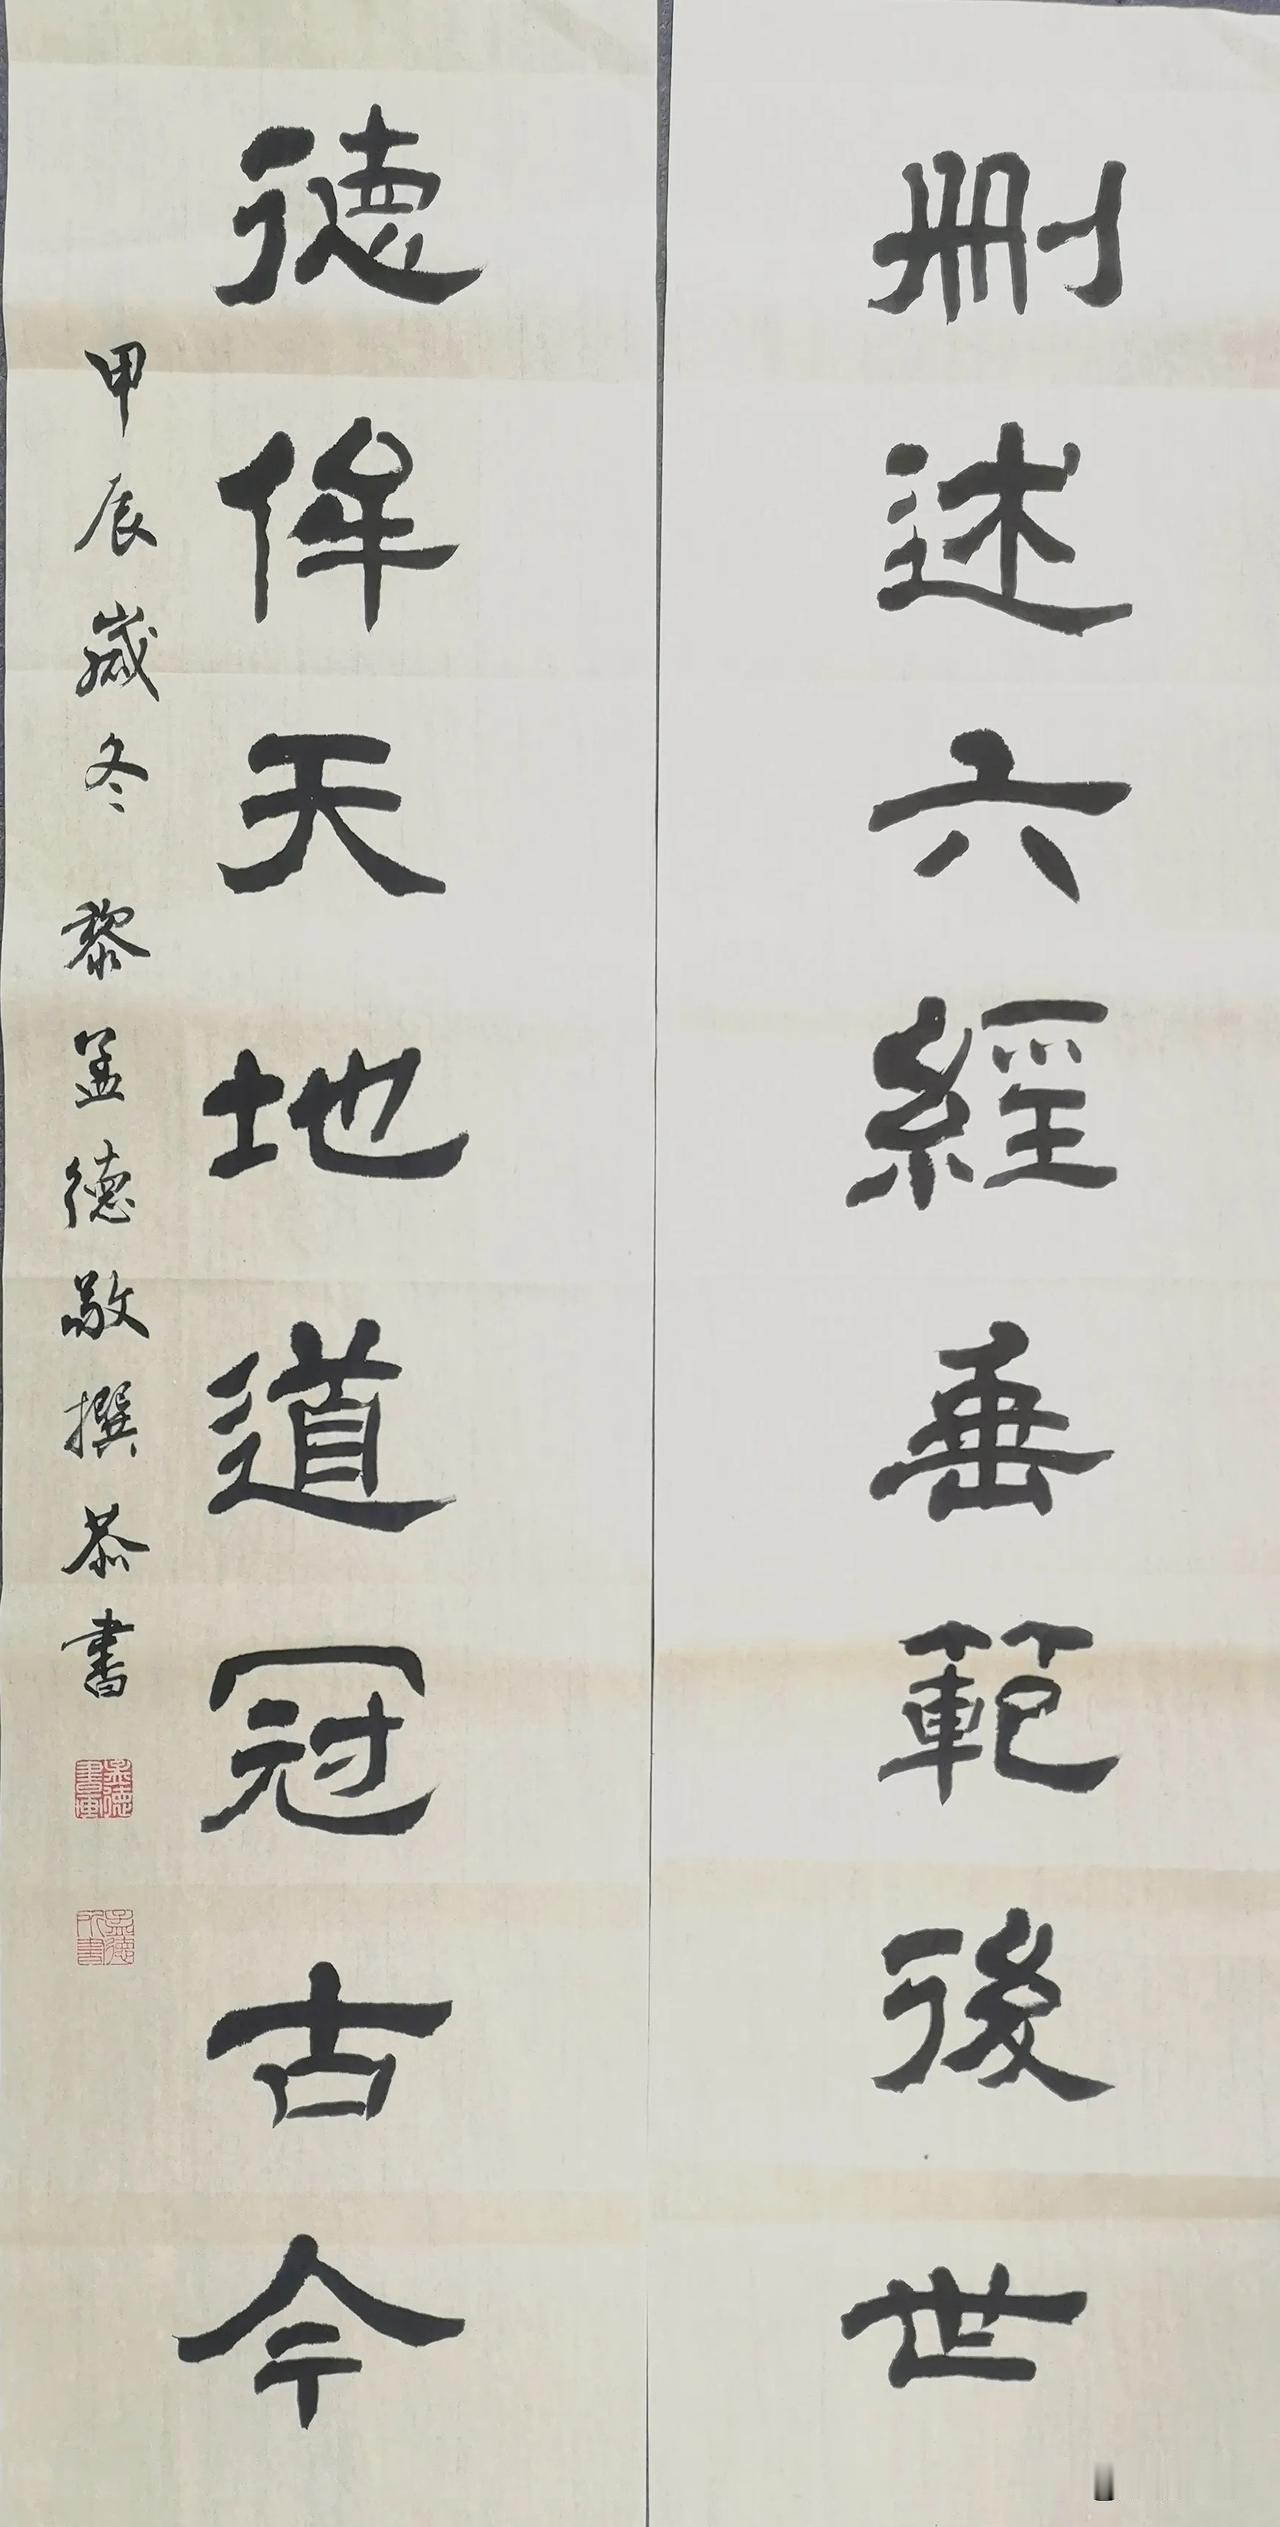 刪述六經垂範後世
德侔天地道冠古今
甲辰歲冬黎孟德敬撰恭書
孟德書畫
孟德所書